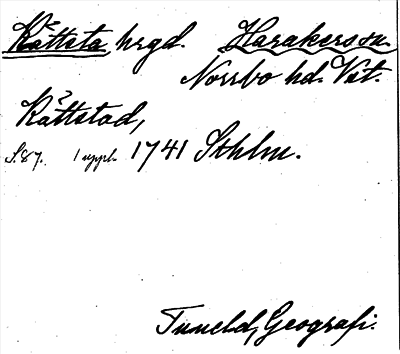 Kåttsta hrgd. Harakers sn.
Norrbo hd. Vst.
Kåttstad,
S. 87. 1 uppl. 1741 Sthlm.
Tuneld, Geografi.